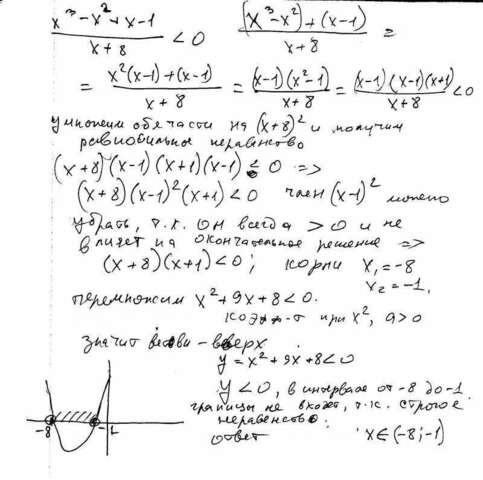 x³-x²+x-1 / x+8 < 0   (x³-x²)+(x-1) / x+8 =
= x²(x-1)+(x-1) / x+8 = (x-1)(x²-1) / x+8 = (x-1)(x-1)(x+1) / x+8 < 0
умножим обе части на (x+8)² и получим
равносильное неравенство
(x+8)(x-1)(x+1)(x-1) < 0 =>
(x+8)(x-1)²(x+1) < 0 член (x-1)² можно
убрать, т.к. он всегда > 0 и не
влияет на окончательное решение =>
(x+8)(x+1) < 0; корни x₁=-8
x₂=-1.
перемножим x²+9x+8<0.
коэф-т при x², a>0
значит ветви-вверх
y=x²+9x+8<0
y<0, в интервале от -8 до -1.
границы не входят, т.к. строгое
неравенство.
ответ x∈(-8;-1)
-8 -1